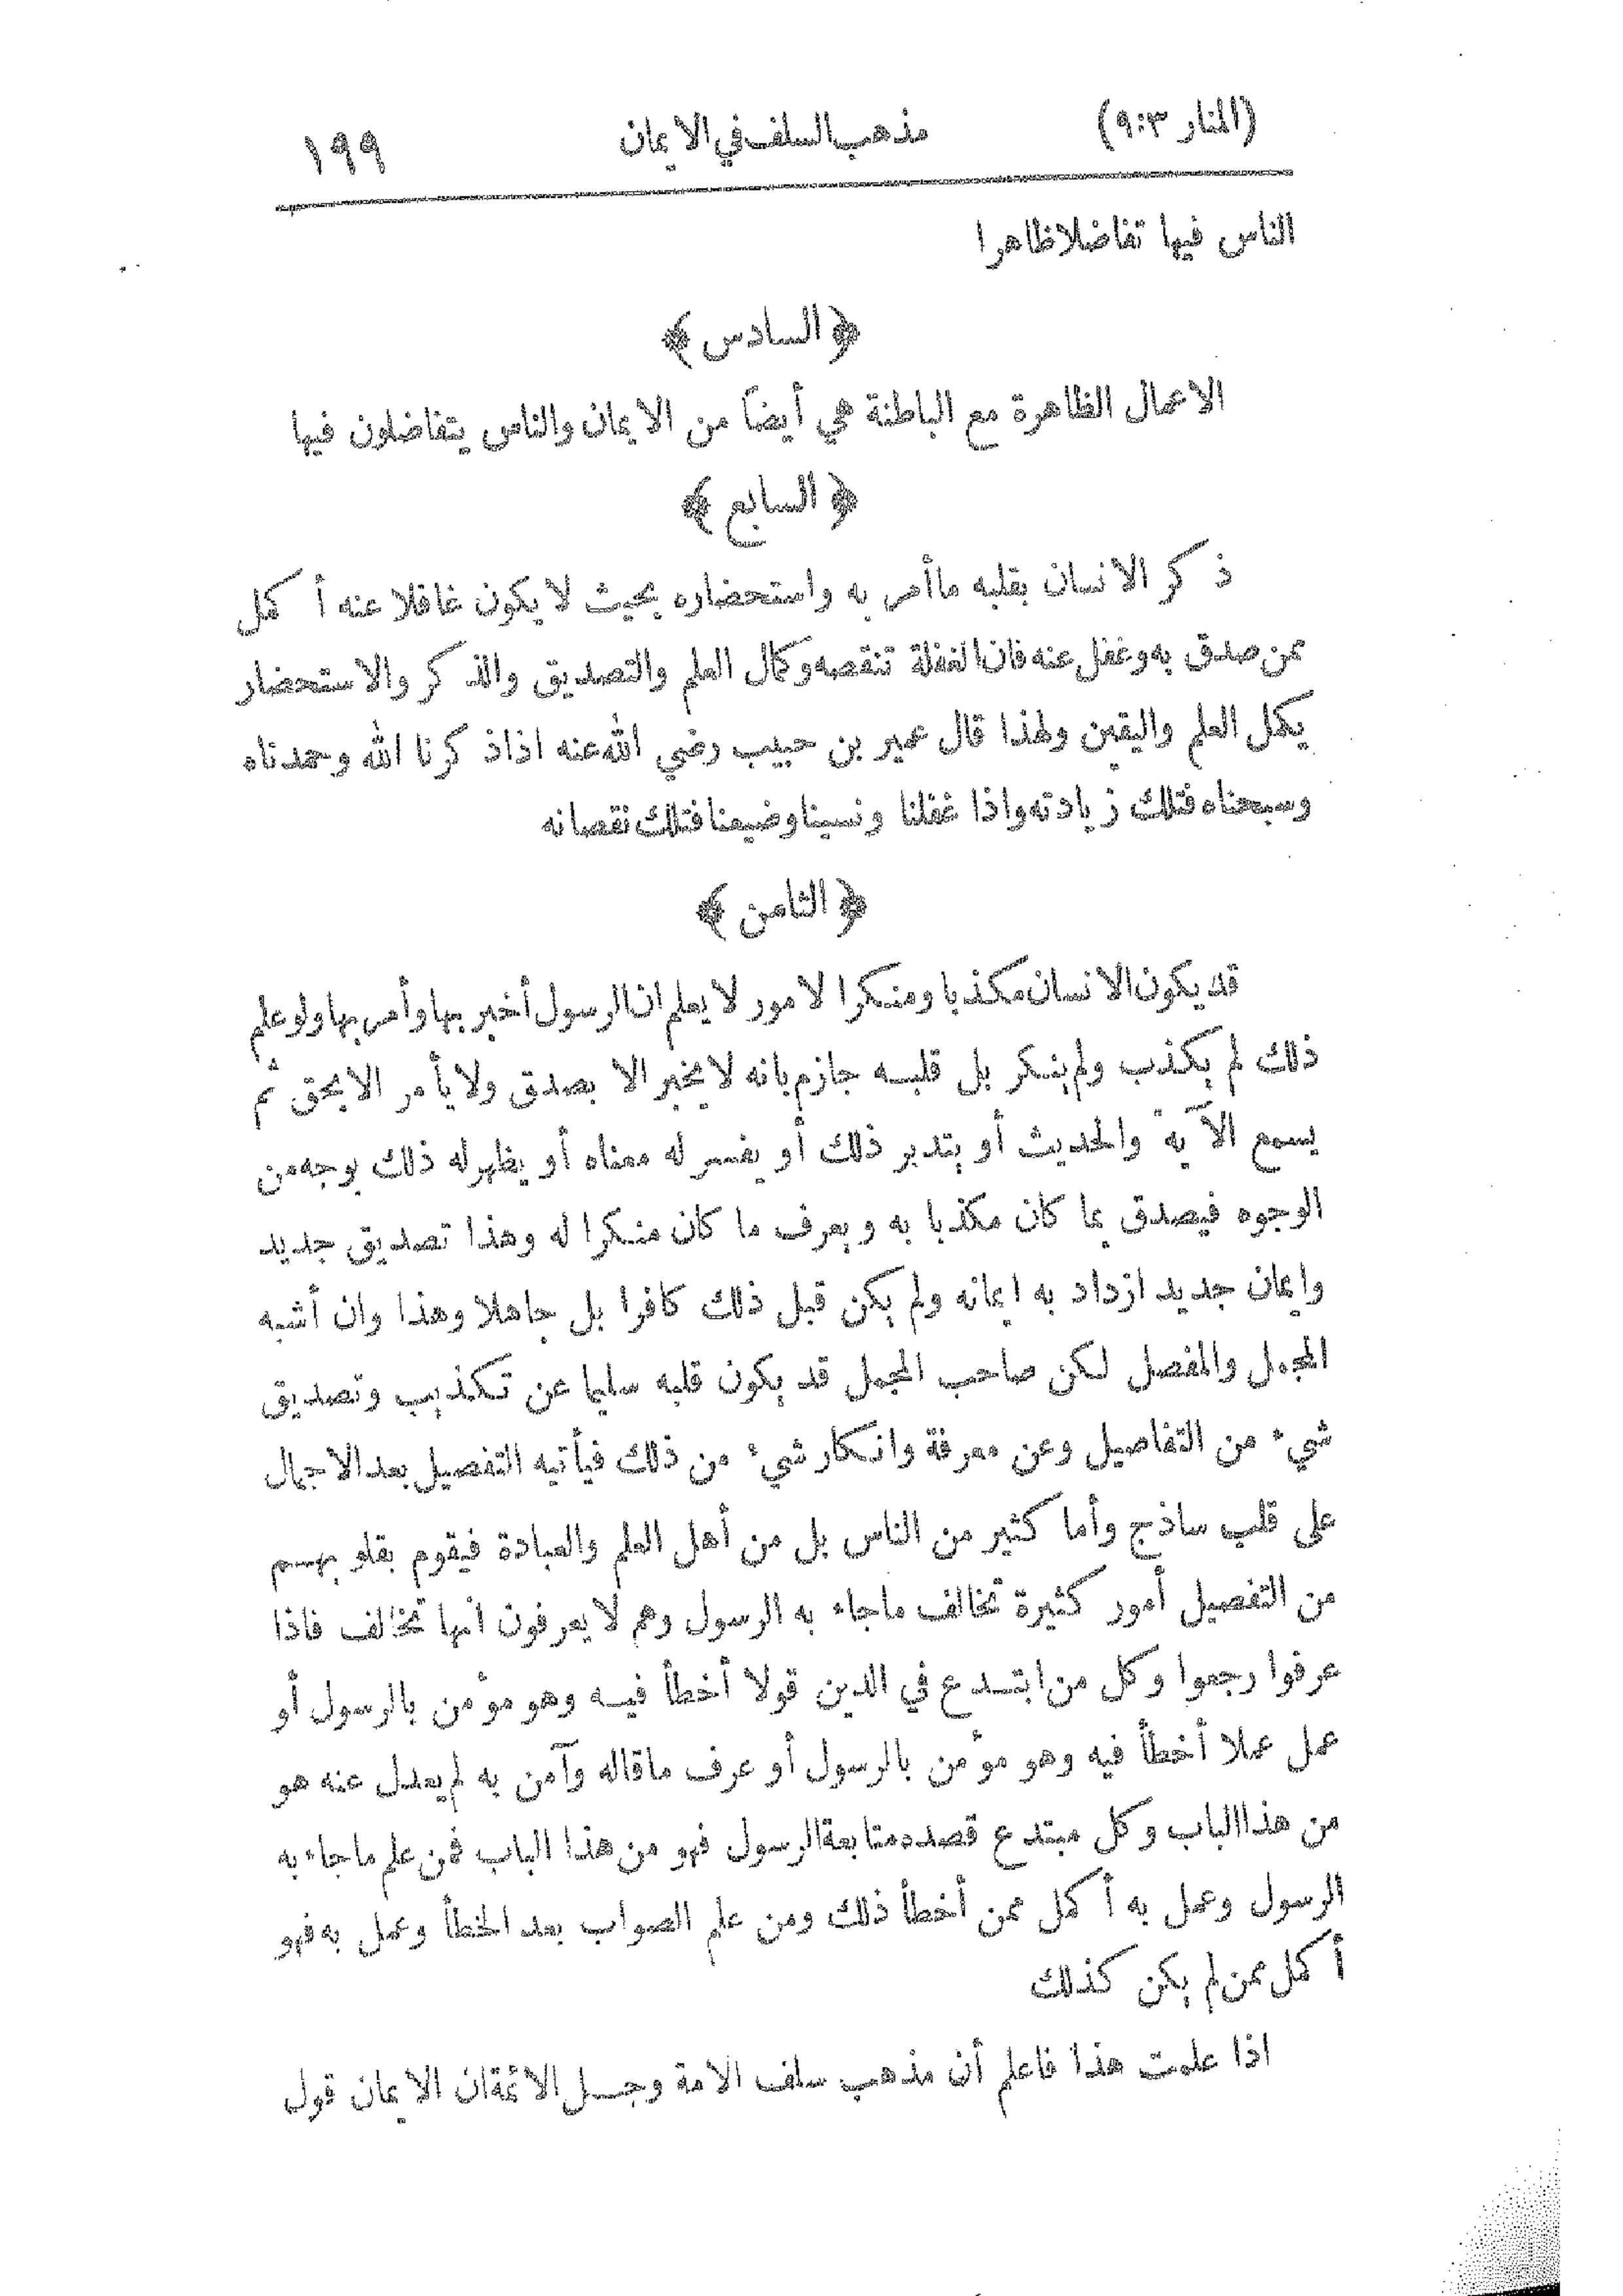 (المنار ٩:٣) مذهب السلف في الايمان ١٩٩
الناس فيها تفاضلا ظاهرا
﴿ السادس ﴾
الاعمال الظاهرة مع الباطنة هي أيضاً من الايمان والناس يتفاضلون فيها
﴿ السابع ﴾
ذكر الانسان بقلبه ماأمر به واستحضاره بحيث لا يكون غافلا عنه أكمل
ممن صدق به وغفل عنه فان الغفلة تنقصه وكمال العلم والتصديق والذكر والاستحضار
يكمل العلم واليقين ولهذا قال عمير بن حبيب رضي الله عنه اذاذكرنا الله وحمدناه
وسبحناه فتلك زيادته واذا غفلنا ونسينا وضيعنا فتلك نقصانه
﴿ الثامن ﴾
قد يكون الانسان مكذبا ومنكرا لامور لا يعلم ان الرسول أخبر بها وأمر بها ولو علم
ذلك لم يكذب ولم ينكر بل قلبه جازم بانه لا يخبر الا بصدق ولا يأمر الا بحق ثم
يسمع الآية والحديث أو يتدبر ذلك أو يفسر له معناه أو يظهر له ذلك بوجه من
الوجوه فيصدق بما كان مكذبا به ويعرف ما كان منكرا له وهذا تصديق جديد
وايمان جديد ازداد به ايمانه ولم يكن قبل ذلك كافرا بل جاهلا وهذا وان أشبه
المجمل والمفصل لكن صاحب المجمل قد يكون قلبه سليما عن تكذيب وتصديق
شيء من التفاصيل وعن معرفة وانكار شيء من ذلك فيأتيه التفصيل بعد الاجمال
على قلب ساذج وأما كثير من الناس بل من أهل العلم والعبادة فيقوم بقلوبهم
من التفصيل أمور كثيرة تخالف ماجاء به الرسول وهم لا يعرفون انها تخالف فاذا
عرفوا رجعوا وكل من ابتدع في الدين قولا أخطأ فيه وهو مؤمن بالرسول أو
عمل عملا أخطأ فيه وهو مؤمن بالرسول أو عرف ماقاله وآمن به لم يعدل عنه هو
من هذا الباب وكل مبتدع قصده متابعة الرسول فهو من هذا الباب فمن علم ماجاء به
الرسول وعمل به أكمل ممن أخطأ ذلك ومن علم الصواب بعد الخطأ وعمل به فهو
أكمل ممن لم يكن كذلك
اذا علمت هذا فاعلم أن مذهب سلف الامة وجل الائمة ان الايمان قول